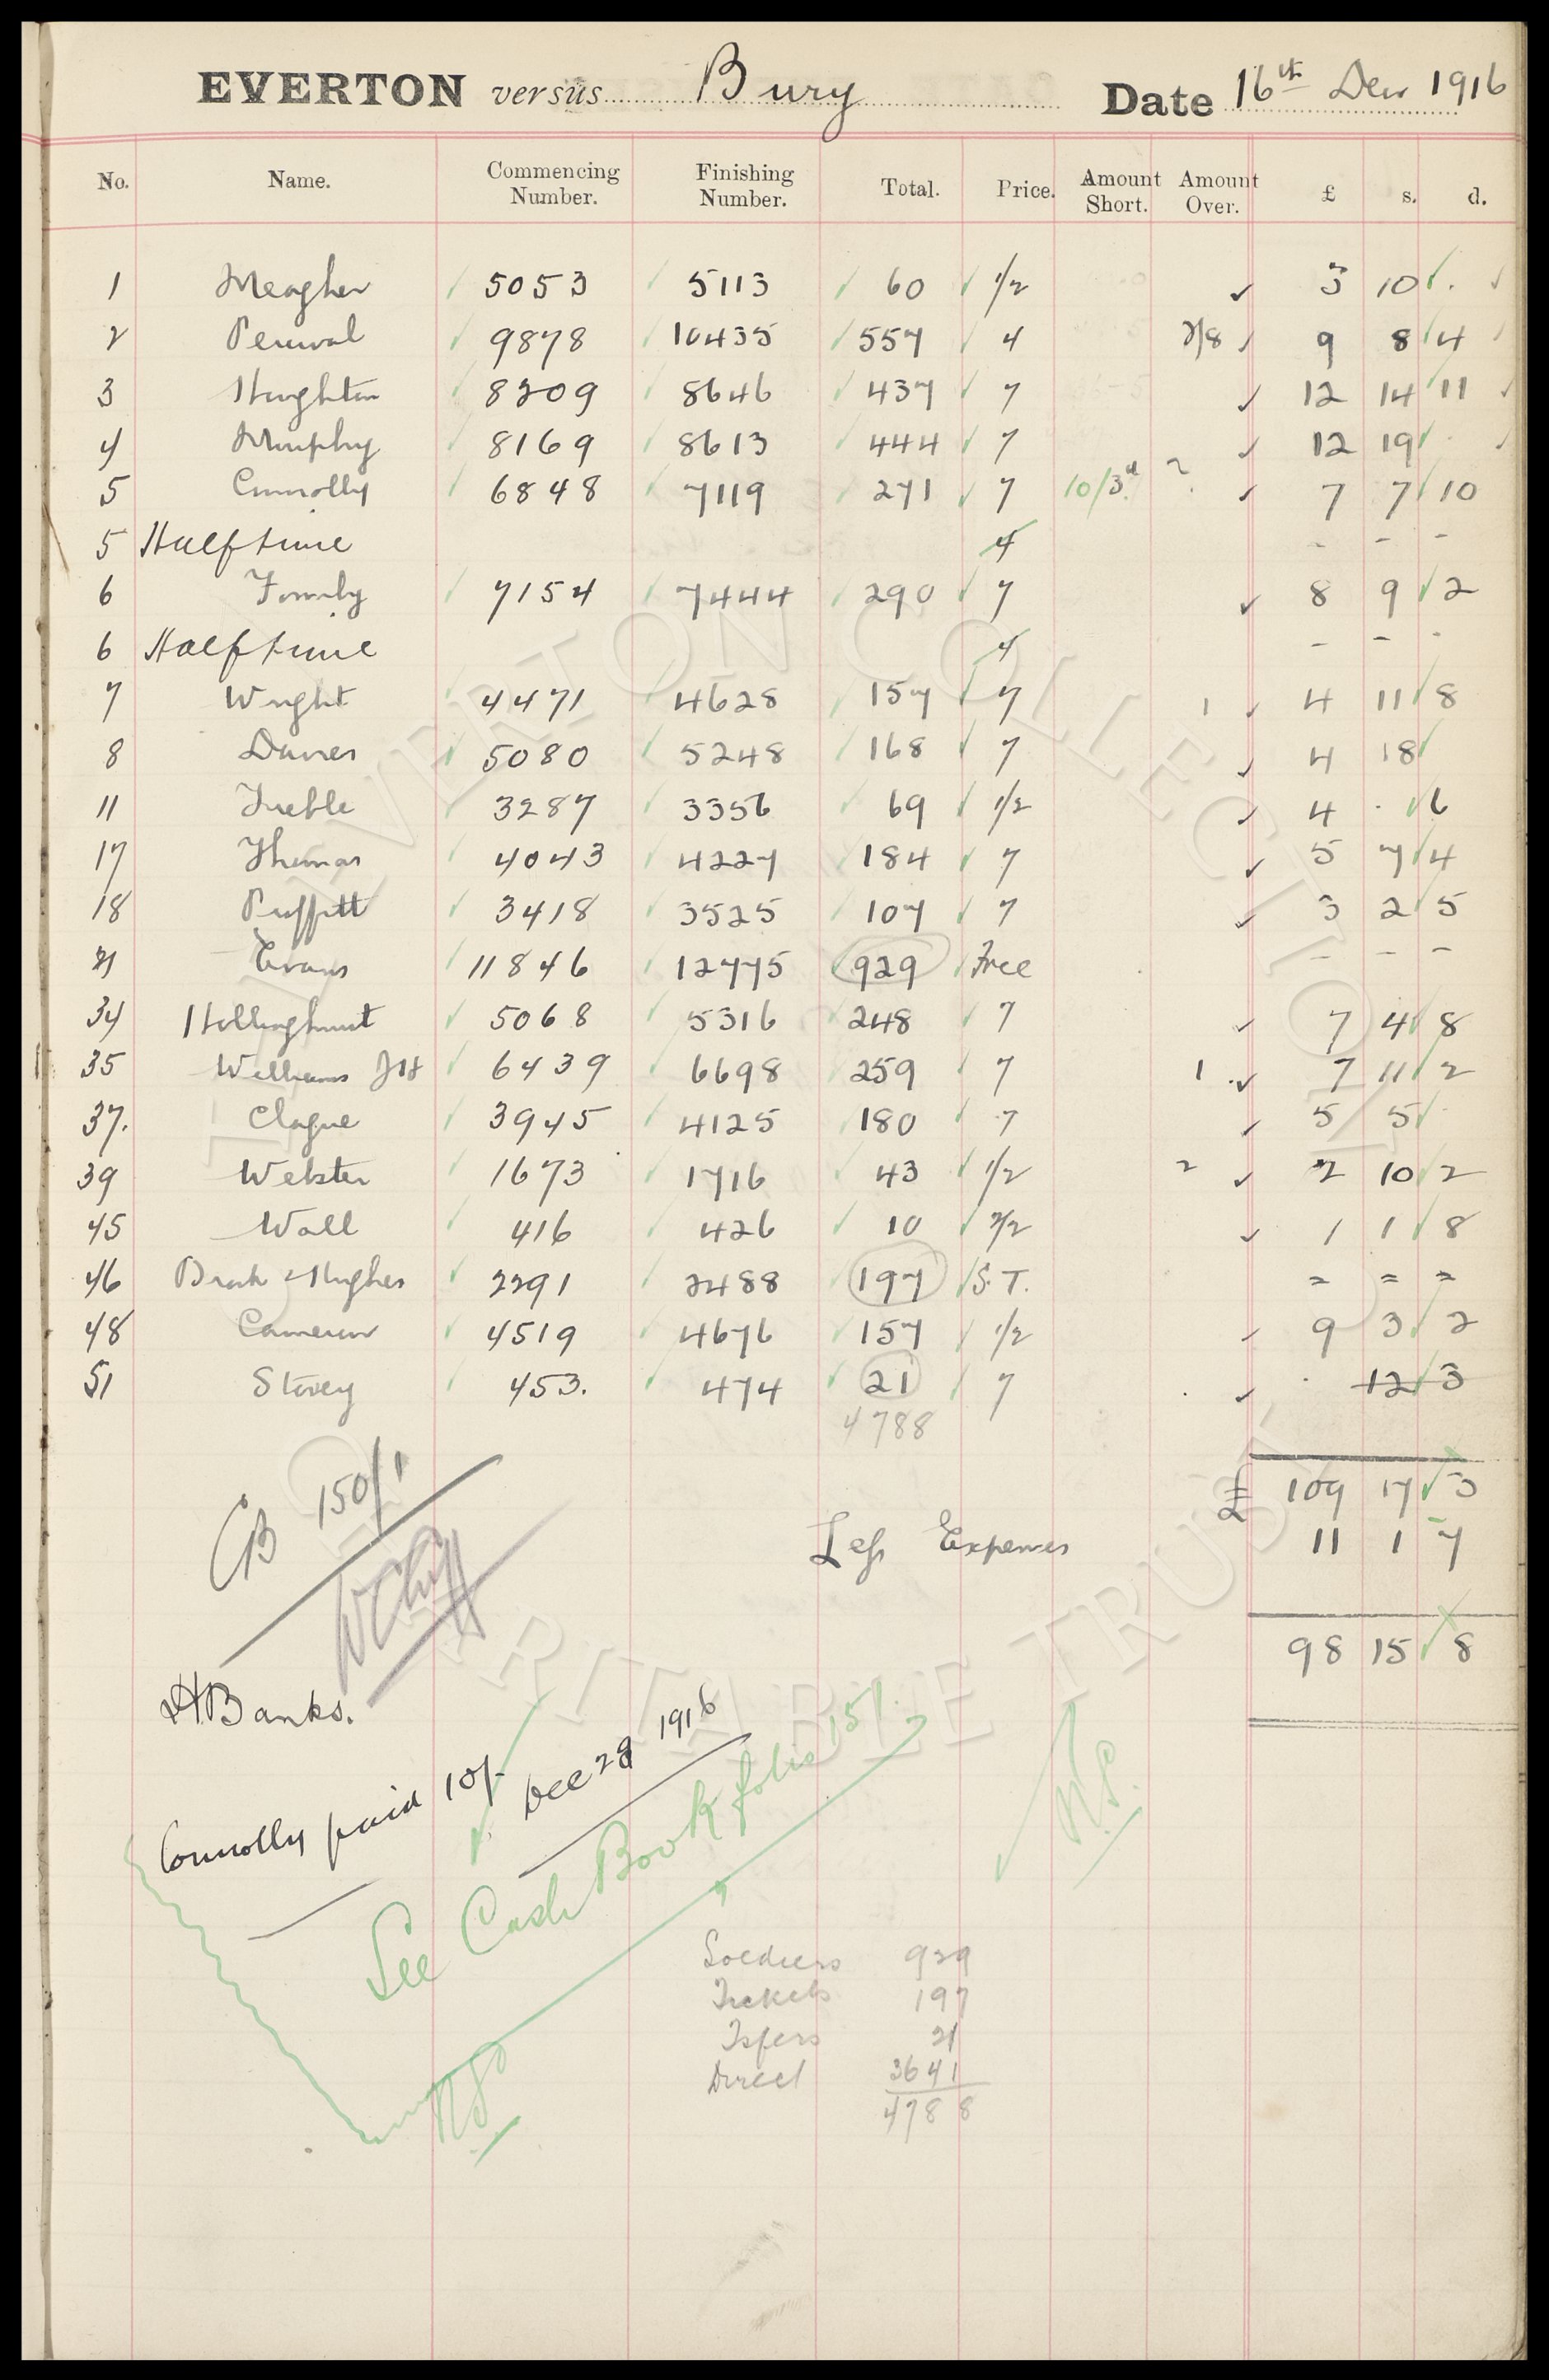 EVERTON versus Bury Date 16th Dec 1916
No. Name. Commencing Number. Finishing Number. Total. Price. Amount Short. Amount Over. £ s. d.
1 Meagher 5053 5113 60 1/2 3 10 .
2 Percival 9878 10435 557 4 2/8 9 8 4
3 Houghton 8209 8646 437 7 12 14 11
4 Murphy 8169 8613 444 7 12 19 .
5 Connolly 6848 7119 271 7 10/3d 2 7 7 10
5 Halftime 4 - - -
6 Formby 7154 7444 290 7 8 9 2
6 Halftime 4 - - -
7 Wright 4471 4628 157 7 1 4 11 8
8 Davies 5080 5248 168 7 4 18
11 Treble 3287 3356 69 1/2 4 . 6
17 Thomas 4043 4227 184 7 5 7 4
18 Proffitt 3418 3525 107 7 3 2 5
21 Evans 11846 12775 929 Free - - -
34 Hollinghurst 5068 5316 248 7 7 4 8
35 Williams JH 6439 6698 259 7 1 7 11 2
37. Clague 3945 4125 180 7 5 5 .
39 Webster 1673 1716 43 1/2 2 2 10 2
45 Wall 416 426 10 2/2 1 1 8
46 & Hughes 2291 2488 197 S.T. = = =
48 Cameron 4519 4676 157 1/2 9 3 2
51 Storey 453. 474 21 7 . 12 3
4788
£ 109 17 3
Less Expenses 11 1 7
98 15 8
CB 150/1
Banks.
Connolly paid 10/- Dec 28 1916
See Cash Book folio 151
Soldiers 929
Tickets 197
Tsfers 21
Direct 3641
4788
EVERTON COLLECTION CHARITABLE TRUST